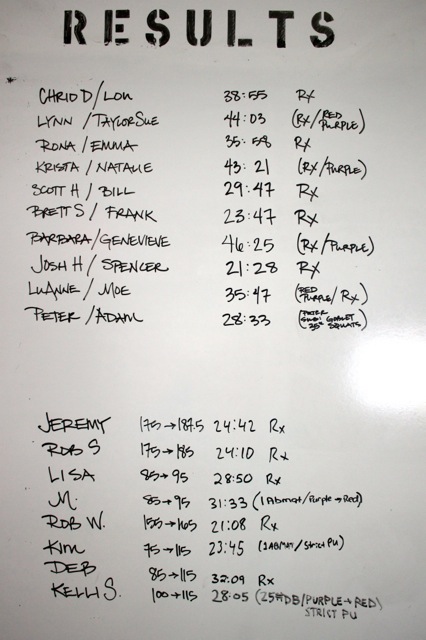 RESULTS
CHRIS D/LOU 38:55 Rx
LYNN /TAYLORSUE 44:03 (Rx/RED PURPLE)
RONA /EMMA 35:58 Rx
KRISTA/NATALIE 43:21 (Rx/PURPLE)
SCOTT H / BILL 29:47 Rx
BRETT S / FRANK 23:47 Rx
BARBARA/GENEVIEVE 46:25 (Rx/PURPLE)
JOSH H/ SPENCER 21:28 Rx
LUANNE/ MOE 35:47 (RED PURPLE/Rx)
PETER /ADAM 28:33 (PETER SUB: GOBLET 25# SQUATS)
JEREMY 175→187.5 24:42 Rx
ROB S 175→185 24:10 Rx
LISA 85→95 28:50 Rx
M. 85→95 31:33 (1Abmat/Purple→Red)
ROB W. 155→165 21:08 Rx
KIM 75→115 23:45 (1ABMAT/Strict PU)
DEB 85→115 32:09 Rx
KELLI S. 100→115 28:05 (25#DB/PURPLE→RED)
STRICT PU